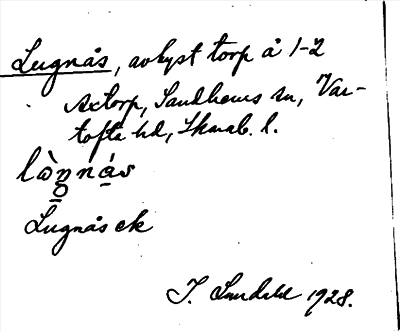 Lugnås, avhyst torp å 1-2
Axtorp, Sandhems sn, Var-
tofta hd, Skarab. l.
lògnás
Lugnås ek
J. Sandahl 1928.